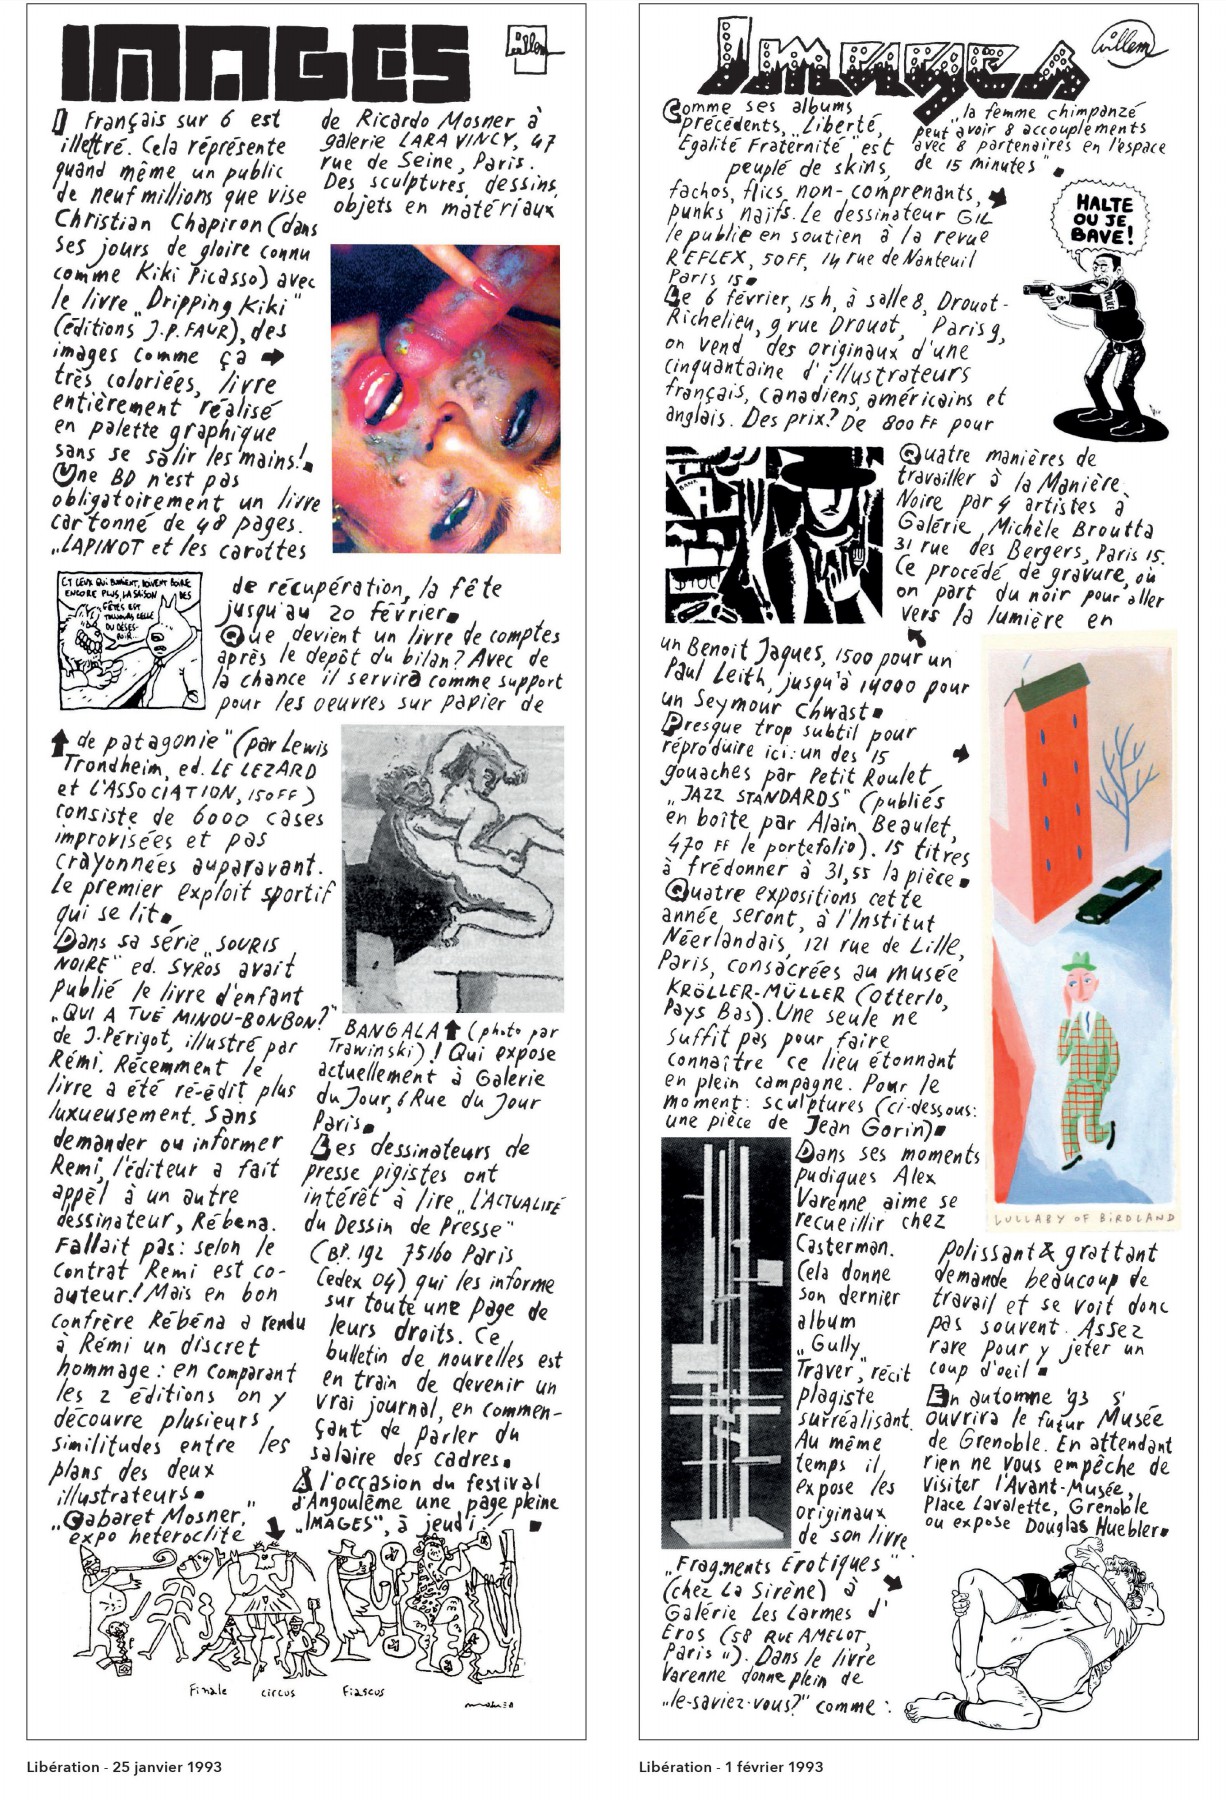 IMAGES
Willem
1 Français sur 6 est
illettré. Cela répresénte
quand même un public
de neuf millions que vise
Christian Chapiron (dans
ses jours de gloire connu
comme Kiki Picasso) avec
le livre „Dripping Kiki"
(éditions J.P. FAUR), des
images comme ça
très coloriées, livre
entièrement réalisé
en palette graphique
sans se salir les mains!
Une BD n'est pas
obligatoirement un livre
cartonné de 48 pages.
„LAPINOT et les carottes
ET CEUX QUI BOIVENT, DOIVENT BOIRE
ENCORE PLUS, LA SAISON DES
FÊTES EST
TOUJOURS CELLE
DU DÉSES-
POIR...
de patagonie" (par Lewis
Trondheim, ed. LE LEZARD
et L'ASSOCIATION, 150FF)
consiste de 6000 cases
improvisées et pas
crayonnées auparavant.
Le premier exploit sportif
qui se lit.
Dans sa série „SOURIS
NOIRE" ed. SYROS avait
publié le livre d'enfant
„QUI A TUÉ MINOU-BONBON?"
de J. Périgot, illustré par
Rémi. Récemment le
livre a été ré-édit plus
luxueusement. Sans
demander ou informer
Remi, l'éditeur a fait
appèl à un autre
dessinateur, Rébena.
Fallait pas: selon le
contrat Remi est co-
auteur! Mais en bon
confrère Rébéna a rendu
à Rémi un discret
hommage: en comparant
les 2 éditions on y
découvre plusieurs
similitudes entre les
plans des deux
illustrateurs.
„Cabaret Mosner,"
expo hétéroclite
de Ricardo Mosner à
galerie LARA VINCY, 47
rue de Seine, Paris.
Des sculptures, dessins,
objets en matériaux
de récupération, la fête
jusqu'au 20 février.
Que devient un livre de comptes
après le depôt du bilan? Avec de
la chance il servira comme support
pour les oeuvres sur papier de
BANGALA (photo par
Trawinski)! Qui expose
actuellement à Galerie
du Jour, 6 Rue du Jour
Paris.
Les dessinateurs de
presse pigistes ont
intérêt à lire „L'ACTUALITÉ
du Dessin de Presse"
(BP. 192 75160 Paris
Cedex 04) qui les informe
sur toute une page de
leurs droits. Ce
bulletin de nouvelles est
en train de devenir un
vrai journal, en commen-
çant de parler du
salaire des cadres.
A l'occasion du festival
d'Angoulême une page pleine
„IMAGES", à jeudi!
Finale circus Fiascus
Libération - 25 janvier 1993
Images
Willem
Comme ses albums
précédents, „Liberté,
Egalité Fraternité" est
peuplé de skins,
fachos, flics non-comprenants,
punks naïfs. Le dessinateur GIL
le publie en soutien à la revue
REFLEX, 50FF, 14 rue de Nanteuil
Paris 15.
Le 6 février, 15h, à salle 8, Drouot-
Richelieu, 9 rue Drouot, Paris 9,
on vend des originaux d'une
cinquantaine d'illustrateurs
français, canadiens, américains et
anglais. Des prix? De 800 FF pour
BANK
$100
un Benoit Jaques, 1500 pour un
Paul Leith, jusqu'à 14000 pour
un Seymour Chwast.
Presque trop subtil pour
réproduire ici: un des 15
gouaches par Petit Roulet
„JAZZ STANDARDS" (publiés
en boîte par Alain Beaulet,
470 FF le portefolio). 15 titres
à frédonner à 31,55 la pièce.
Quatre expositions cette
année seront, à l'Institut
Néerlandais, 121 rue de Lille,
Paris, consacrées au musée
KRÖLLER-MÜLLER (Otterlo,
Pays Bas). Une seule ne
suffit pas pour faire
connaître ce lieu étonnant
en plein campagne. Pour le
moment: sculptures (ci-dessous:
une pièce de Jean Gorin).
Dans ses moments
pudiques Alex
Varenne aime se
recueillir chez
Casterman.
Cela donne
son dernier
album
„Gully
Traver", récit
plagiste
surréalisant.
Au même
temps il
expose les
originaux
de son livre
„Fragments Érotiques"
(chez La Sirène) à
Galérie Les Larmes d'
Eros (58 RUE AMELOT,
Paris 11). Dans le livre
Varenne donne plein de
„le-saviez-vous?" comme:
„la femme chimpanzé
peut avoir 8 accouplements
avec 8 partenaires en l'espace
de 15 minutes".
HALTE
OU JE
BAVE!
POLICE
Quatre manières de
travailler à la Manière
Noire par 4 artistes à
Galérie Michèle Broutta
31 rue des Bergers, Paris 15.
Ce procédé de gravure, où
on part du noir pour aller
vers la lumière en
LULLABY OF BIRDLAND
polissant & grattant
demande beaucoup de
travail et se voit donc
pas souvent. Assez
rare pour y jeter un
coup d'oeil.
En automne '93 s'
ouvrira le futur Musée
de Grenoble. En attendant
rien ne vous empêche de
visiter l'Avant-Musée,
Place Lavalette, Grenoble
ou expose Douglas Huebler.
Libération - 1 février 1993